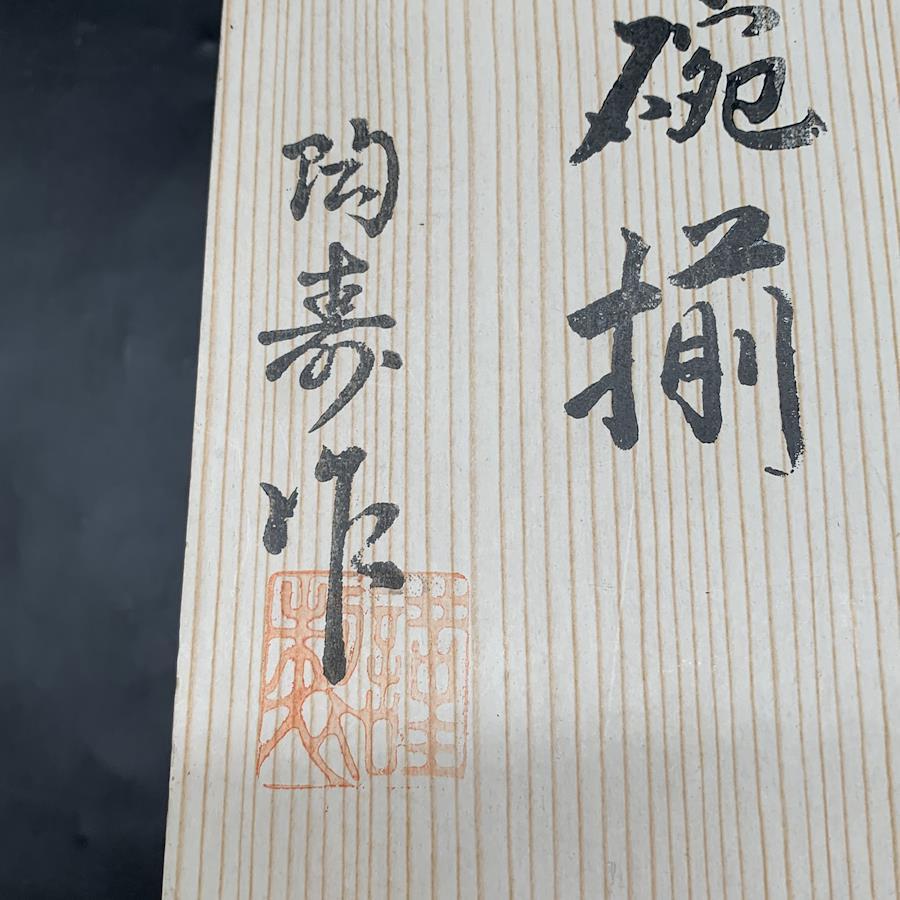 碗揃
陶寿作